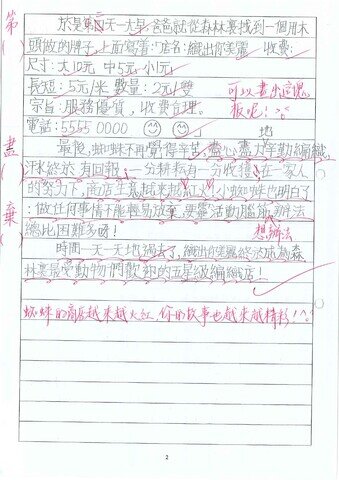 於是第二天一大早,爸爸就從森林裏找到一個用木
頭做的牌子,上面寫著:店名:織出你美麗 收費:
尺寸:大10元 中5元 小1元
長短:5元/米 數量:2元/雙
宗旨:服務優質,收費合理。
電話:5555 0000
可以畫出這塊
板呢!
最後,蜘蛛不再覺得辛苦,盡心盡力地勤勤編織,
汗水終於有回報,一分耕耘有一分收穫,在一家人
的努力下,商店生意越來越紅火,小蜘蛛也明白了
:做任何事情不能輕易放棄,要靈活動腦筋,辦法
想辦法
總比困難多啊!
時間一天一天地過去了,織出你美麗終於成為森
林裏最受動物們歡迎的五星級編織店!
蜘蛛的商店越來越火紅,你的故事也越來越精彩!
第
盡
棄
2